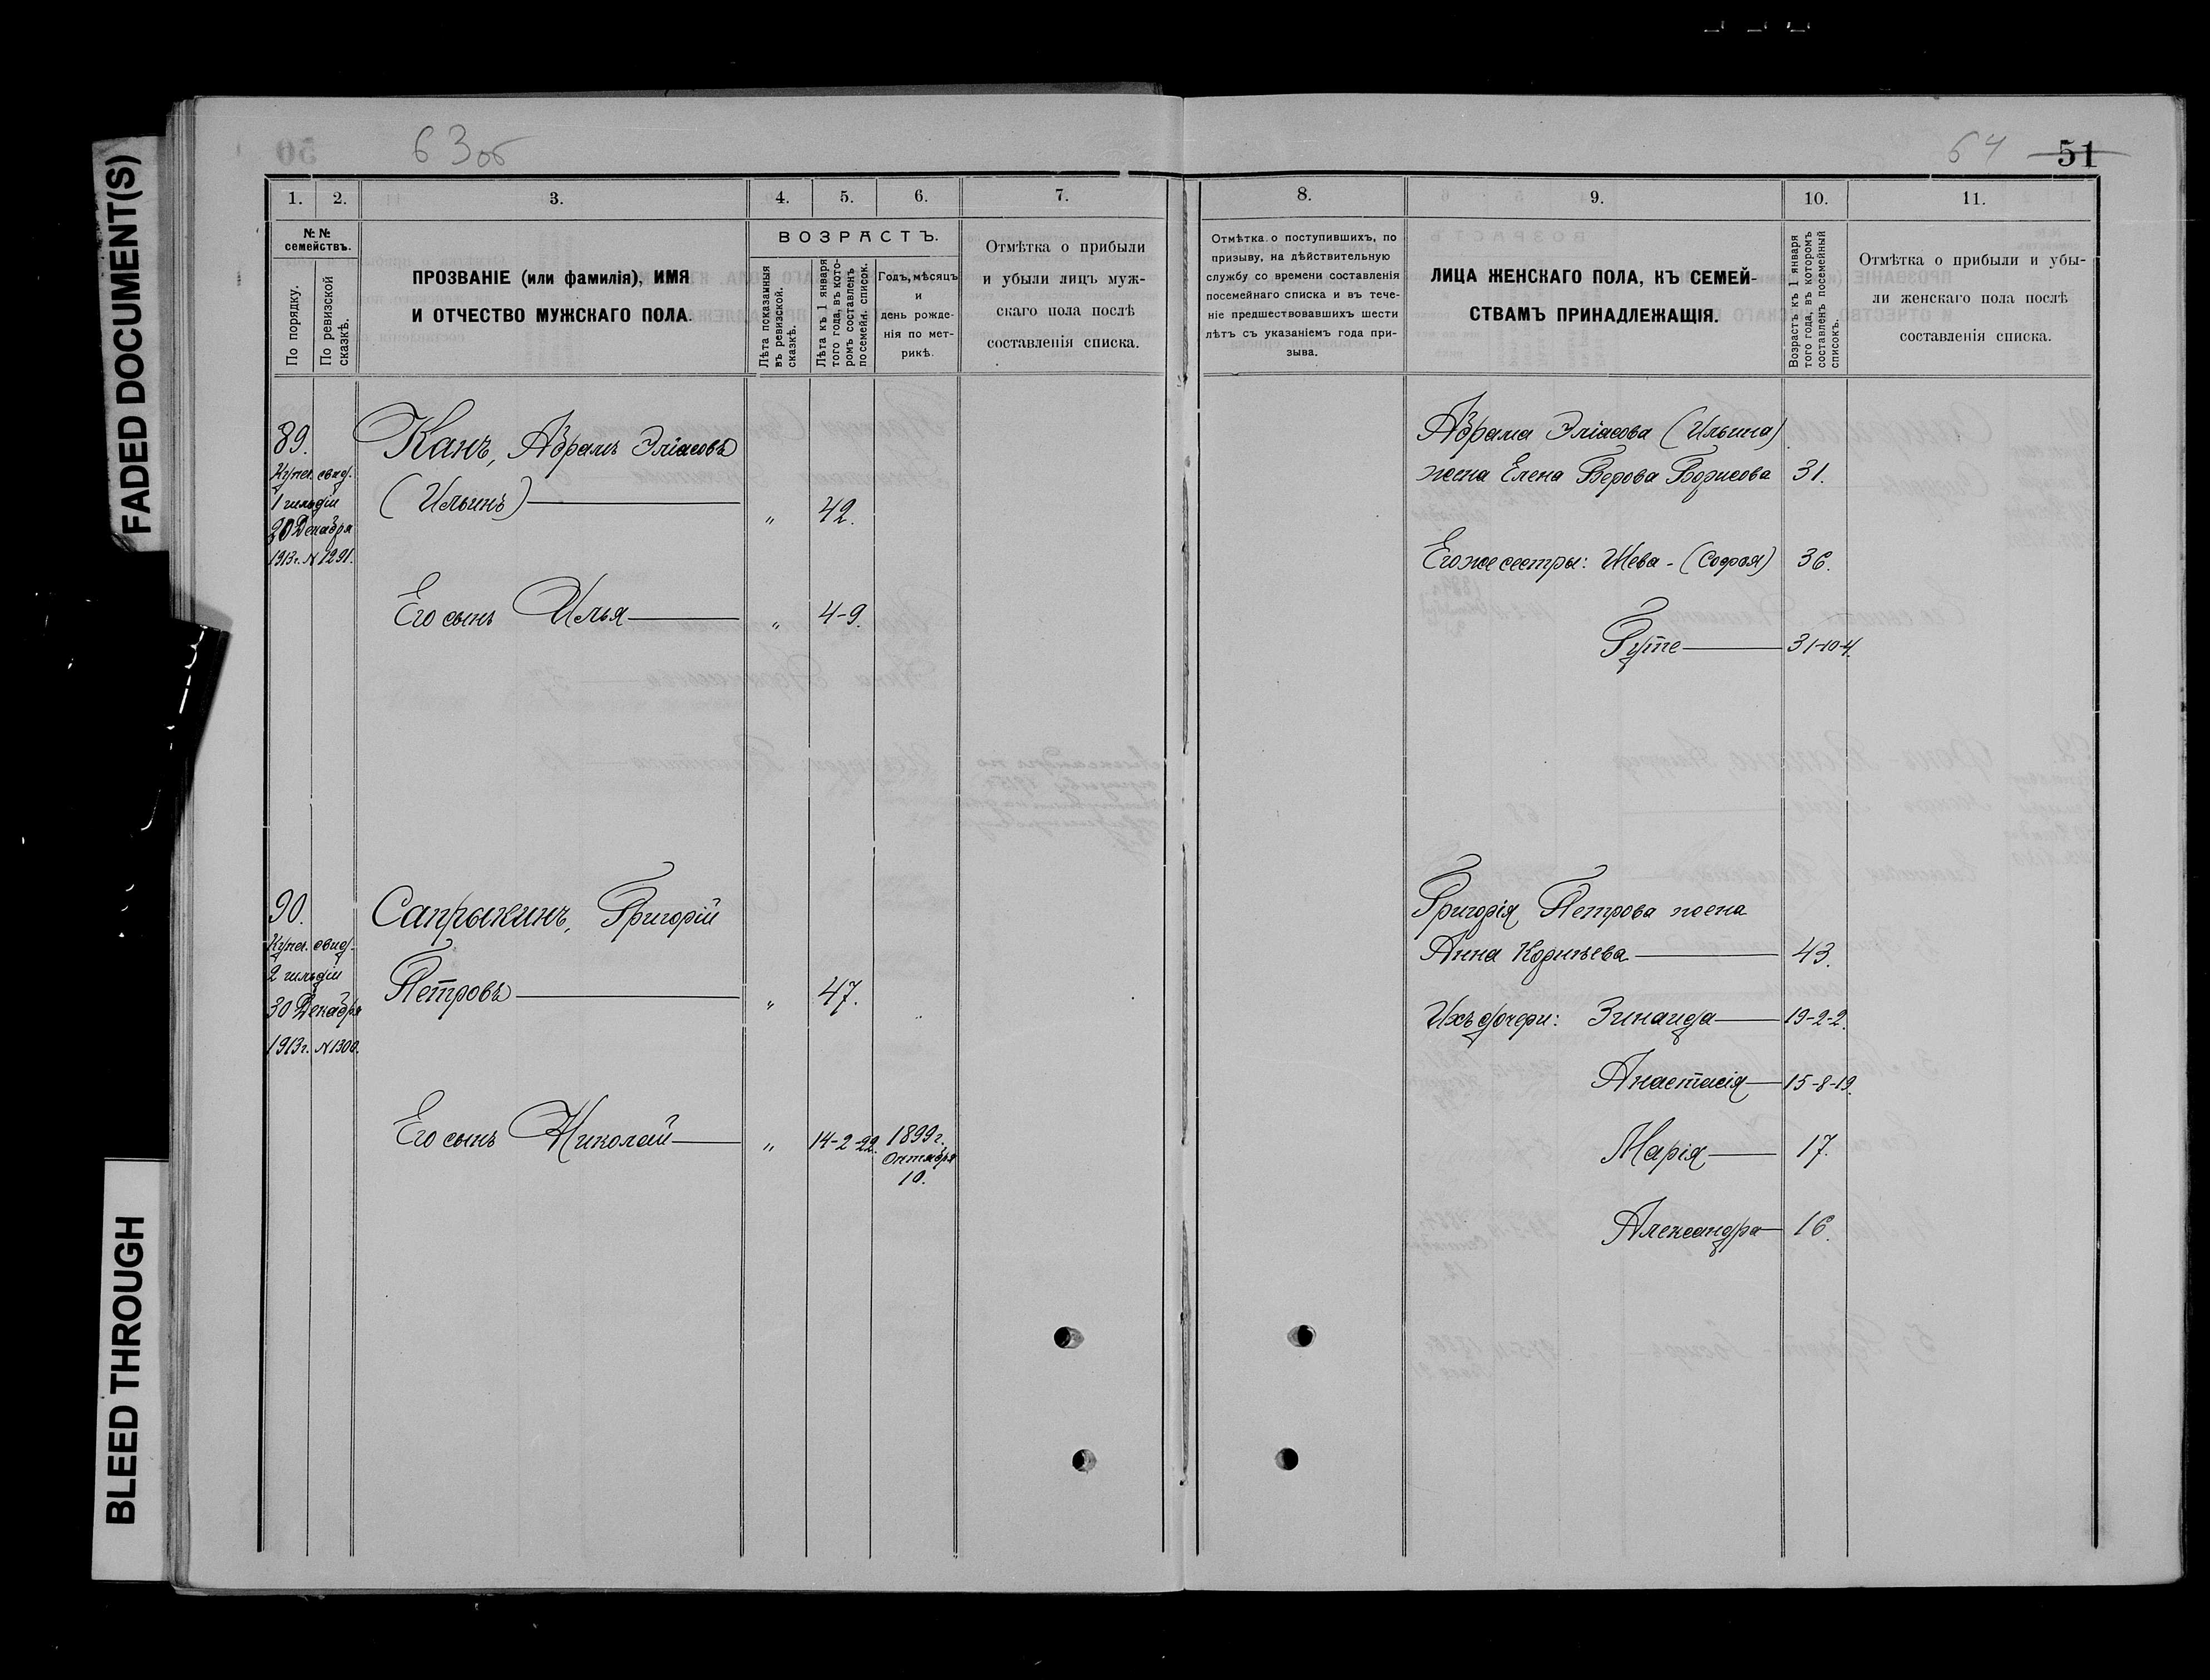 FADED DOCUMENT(S)
BLEED THROUGH
63об
64 51
1. 2. 3. 4. 5. 6. 7.
№ №
семействъ.
По порядку.
По ревизской
сказкѣ.
ПРОЗВАНІЕ (или фамилія), ИМЯ
И ОТЧЕСТВО МУЖСКАГО ПОЛА.
ВОЗРАСТЪ.
Лѣта показанныя
въ ревизской.
сказкѣ.
Лѣта къ 1 января
того года, въ кото-
ромъ составленъ
посемейн. список.
Годъ, мѣсяцъ
и
день рожде-
нія по мет-
рикѣ.
Отмѣтка о прибыли
и убыли лицъ муж-
скаго пола послѣ
составленія списка.
89.
Купеч. свид.
1 гильдіи
20 Декабря
1913г. № 1291.
Канъ, Абрамъ Эліасовъ
(Ильинъ) " 42.
Его сынъ Илья " 4-9.
90.
Купеч. свид.
2 гильдіи
30 Декабря
1913г. № 1300.
Сапрыкинъ, Григорій
Петровъ " 47.
Его сынъ Николай " 14-2-22. 1899г.
Октября
10.
8. 9. 10. 11.
Отмѣтка о поступившихъ, по
призыву, на дѣйствительную
службу со времени составленія
посемейнаго списка и въ тече-
ніе предшествовавшихъ шести
лѣтъ съ указаніемъ года при-
зыва.
ЛИЦА ЖЕНСКАГО ПОЛА, КЪ СЕМЕЙ-
СТВАМЪ ПРИНАДЛЕЖАЩІЯ.
Возрастъ къ 1 января
того года, въ которомъ
составленъ посемейный
списокъ.
Отмѣтка о прибыли и убы-
ли женскаго пола послѣ
составленія списка.
Абрама Эліасова (Ильина)
жена Елена Берова Борисова 31.
Его же сестры: Шева - (Софія) 36.
Гуте 31-10-4.
Григорія Петрова жена
Анна Корнѣева 43.
Ихъ дочери: Зинаида 19-2-2.
Анастасія 15-8-19.
Марія 17.
Александра 16.